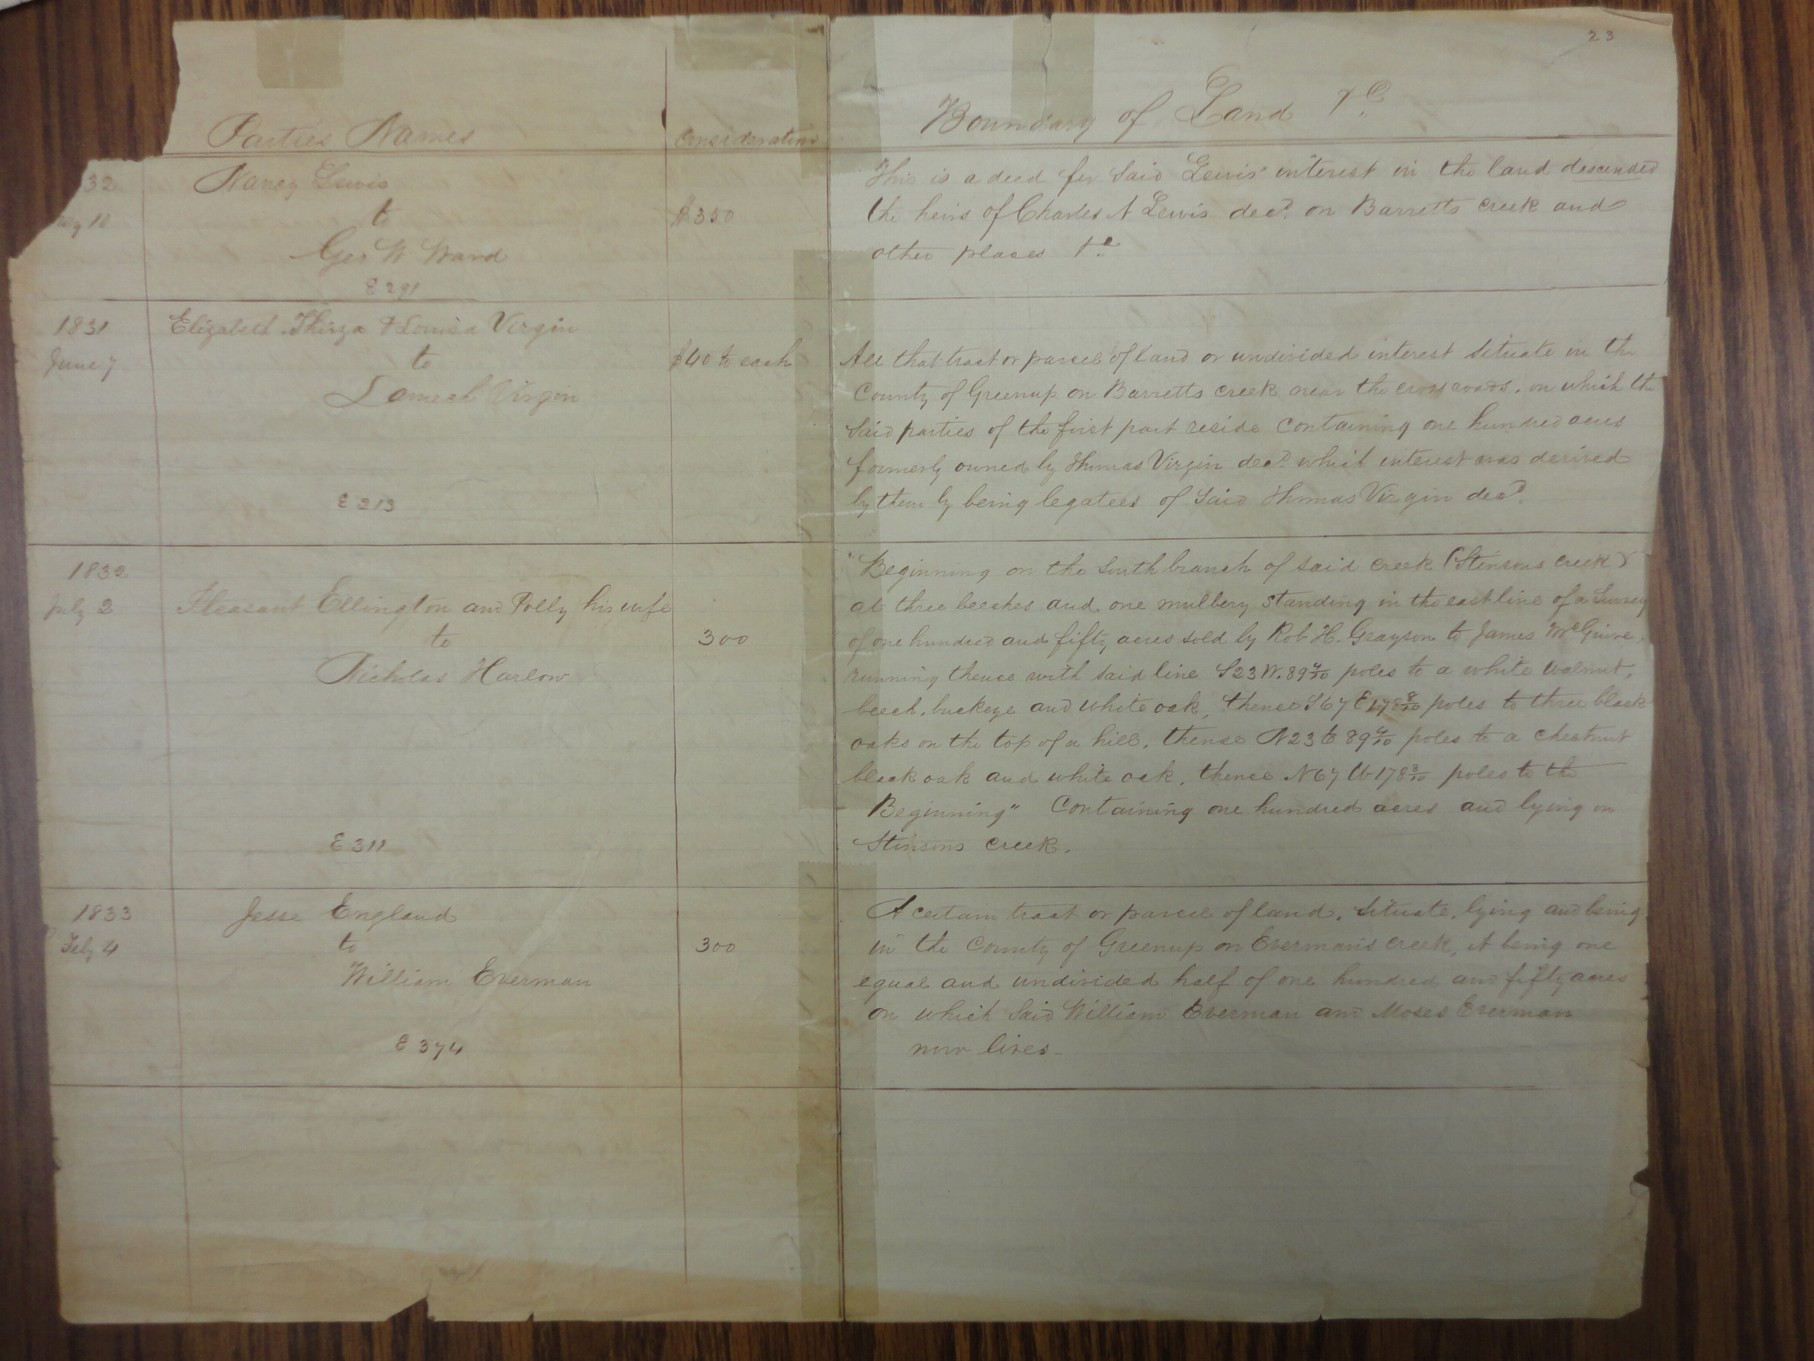 23
Parties Names
Consideration
Boundary of Land &C.
32
10
Nancy Lewis
to
Geo W Ward
E 291
$350
This is a deed for said Lewis' interest in the land descended
the heirs of Charles N Lewis decd. on Barretts creek and
other places &c
1831
June 7
Elizabeth, Thirza & Louisa Virgin
to
Lamech Virgin
E 213
$40 to each
All that tract or parcel of land or undivided interest situate in the
County of Greenup on Barretts creek near the cross roads, on which the
said parties of the first part reside containing one hundred acres
formerly owned by Thomas Virgin decd. which interest was derived
by them by being legatees of said Thomas Virgin decd.
1832
July 2
Pleasant Ellington and Polly his wife
to
Nicholas Harlow
E 311
300
"Beginning on the south branch of said creek (Stensons creek)
at three beeches and one mulbery standing in the east line of a survey
of one hundred and fifty acres sold by Rob H. Grayson to James McGuire,
running thence with said line S 23 W. 89 4/10 poles to a white walnut,
beech, buckeye and white oak, thence S 67 E 178 8/10 poles to three black
oaks on the top of a hill, thense N 23 E 89 4/10 poles to a chestnut
black oak and white oak, thence N 67 W 178 8/10 poles to the
Beginning" Containing one hundred acres and lying on
Stinsons creek.
1833
Feby 4
Jesse England
to
William Everman
E 374
300
A certain tract or parcel of land, situate, lying and being
in the County of Greenup on Everman's creek, it being one
equal and undivided half of one hundred and fifty acres
on which said William Everman and Moses Everman
now lives.